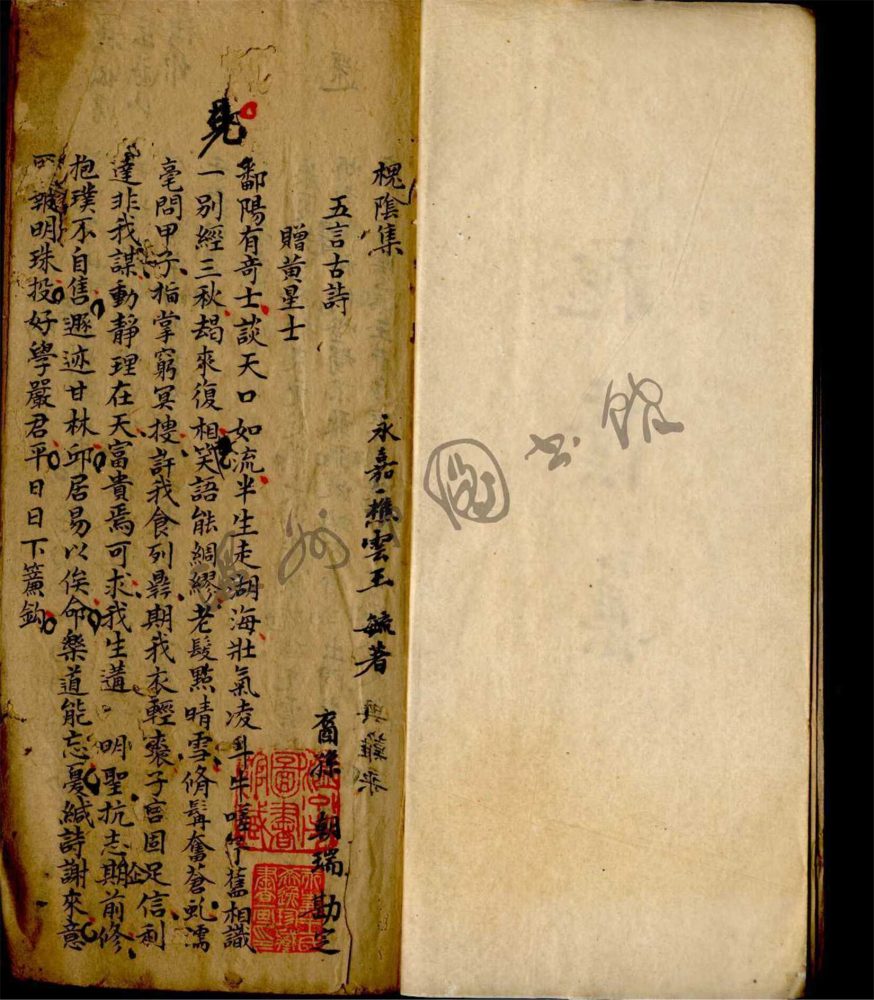 槐陰集
永嘉樵雲王毓著
裔孫朝瑞勘定
五言古詩
贈黃星士
鄱陽有奇士談天口如流半生走胡海壯氣凌斗牛嗟予舊相識
一別經三秋朅來復相笑語能綢繆老髮點晴雪脩髯奮蒼虬濡
毫問甲子指掌窮冥搜許我食列鼎期我衣輕裘子言固足信利
達非我謀動靜理在天富貴焉可求我生遘明聖抗志期前修
抱璞不自售遯迹甘林邱居易以俟命樂道能忘憂緘詩謝來意
明珠投好學嚴君平日日下簾鈎